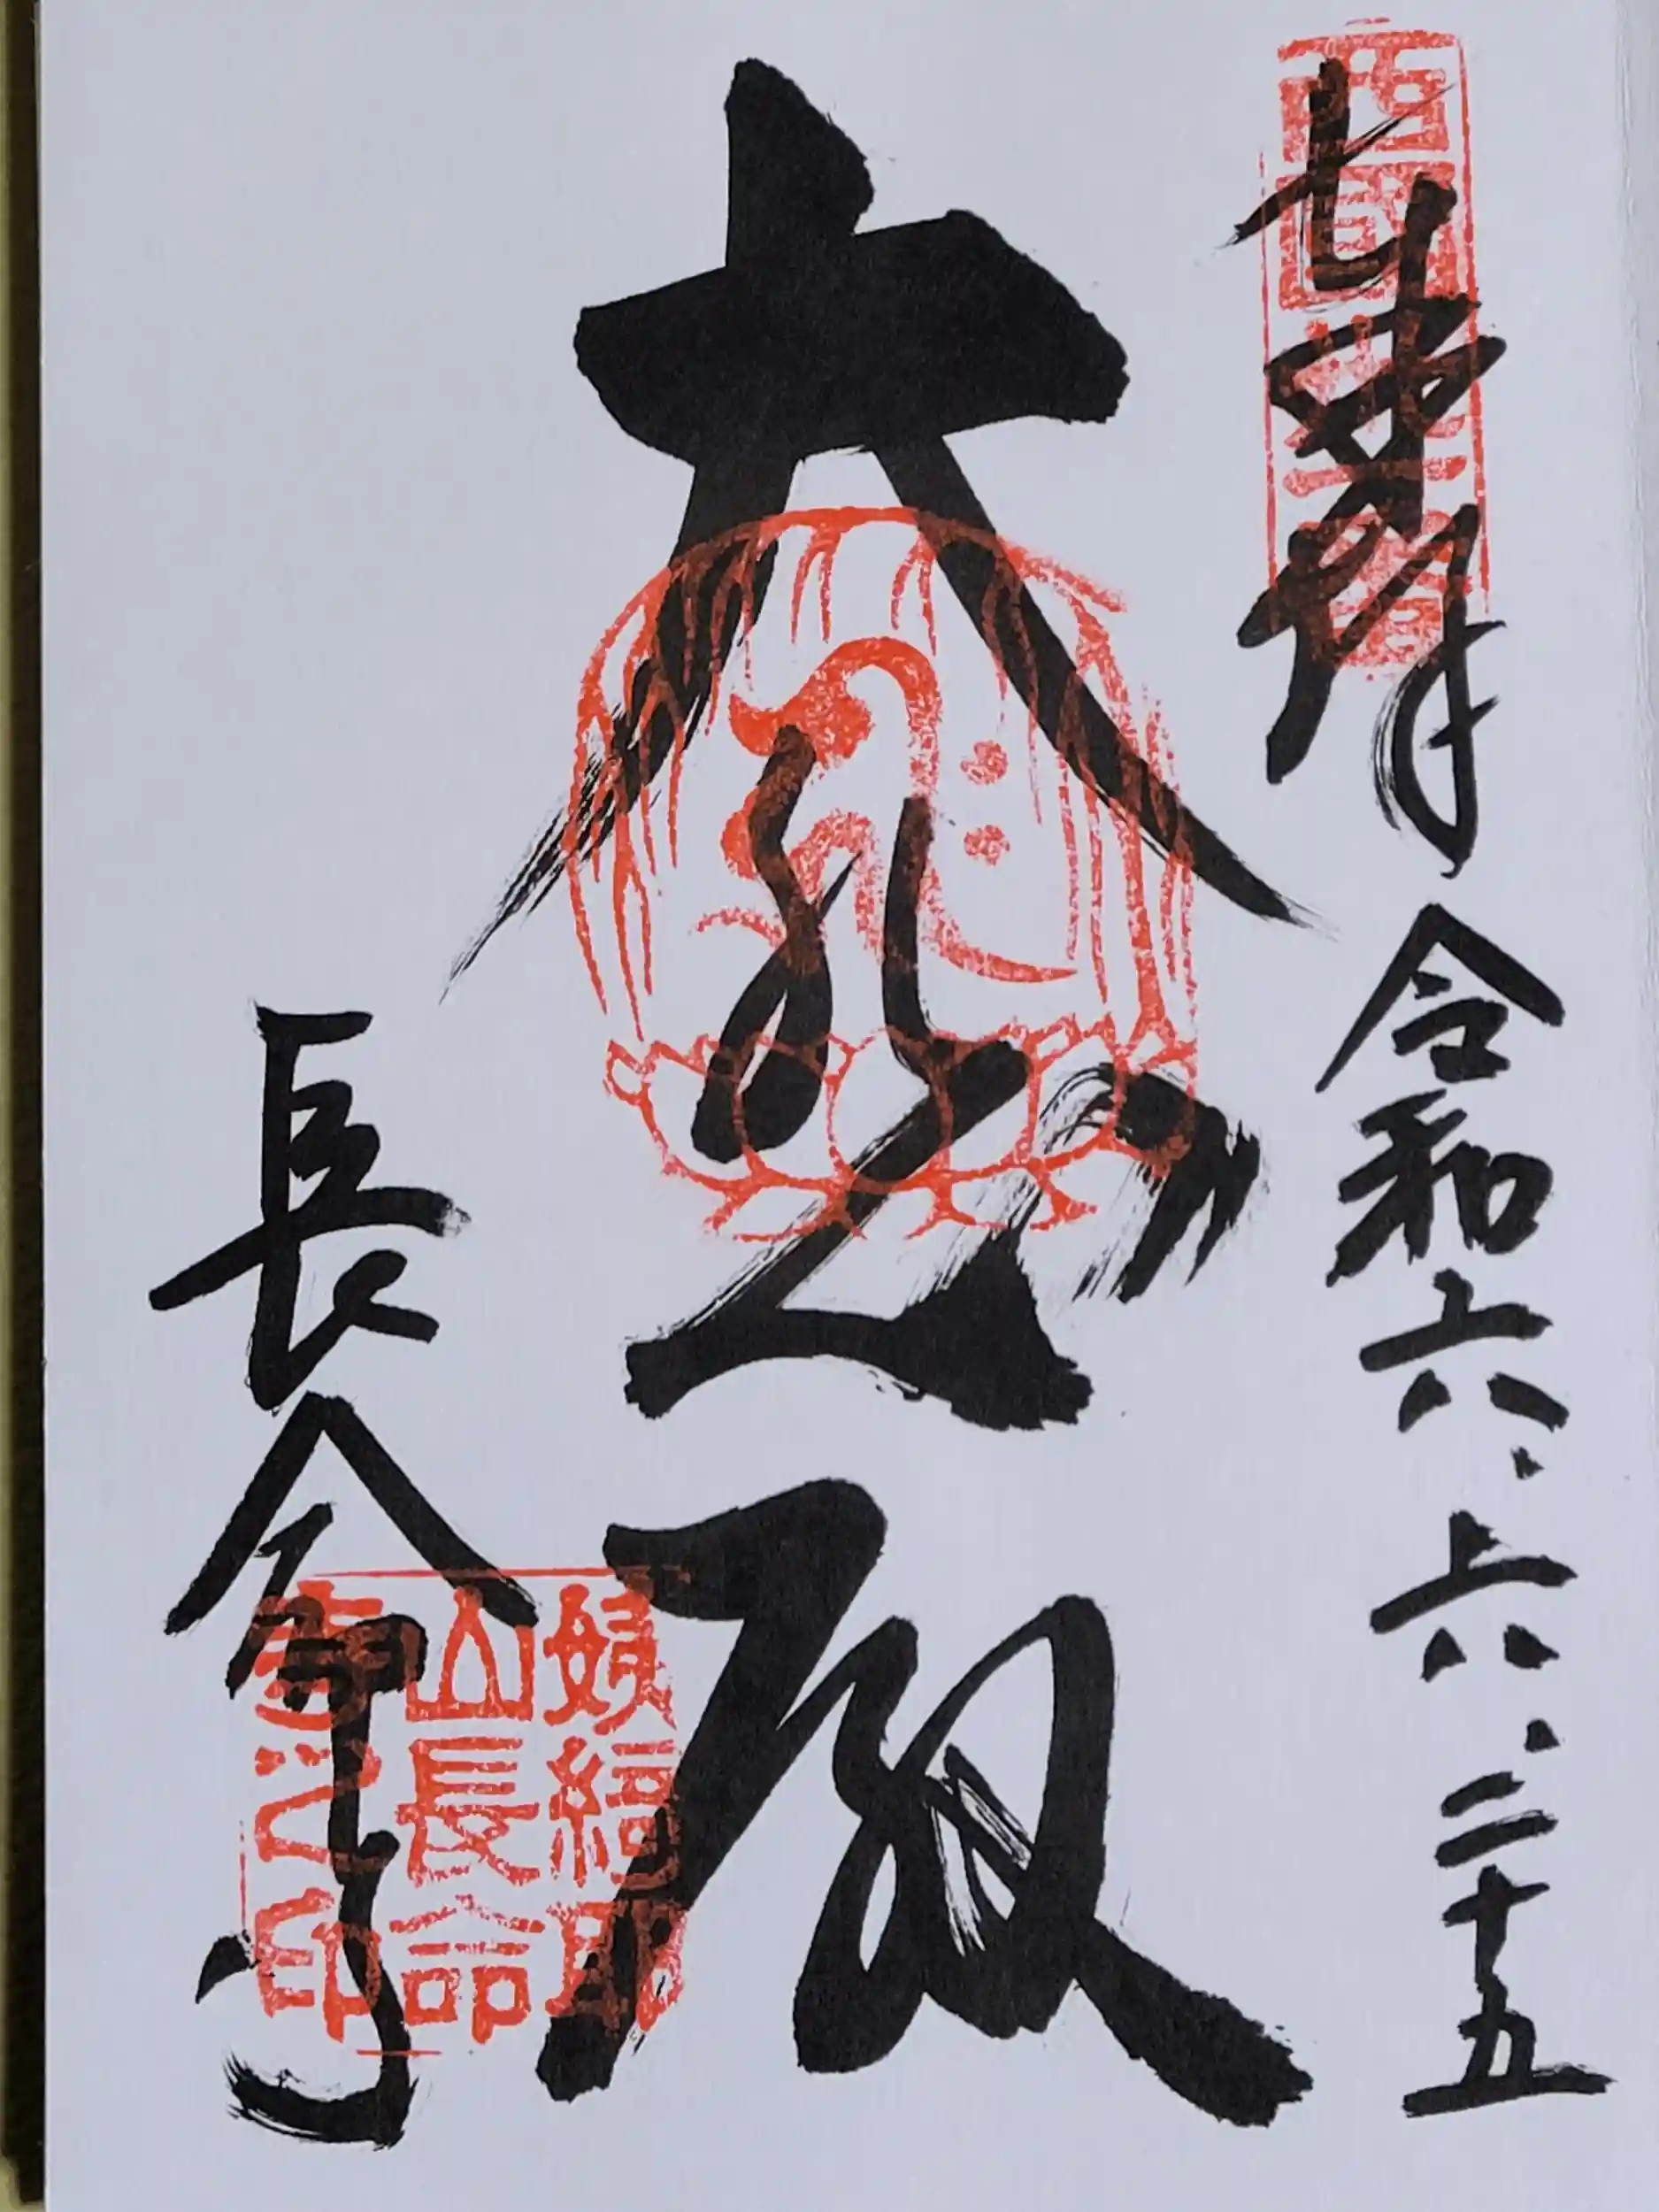 奉拝
令和六、六、二十五
西國三十一番
大悲殿
長命寺
姨綺耶
山長命
寺之印